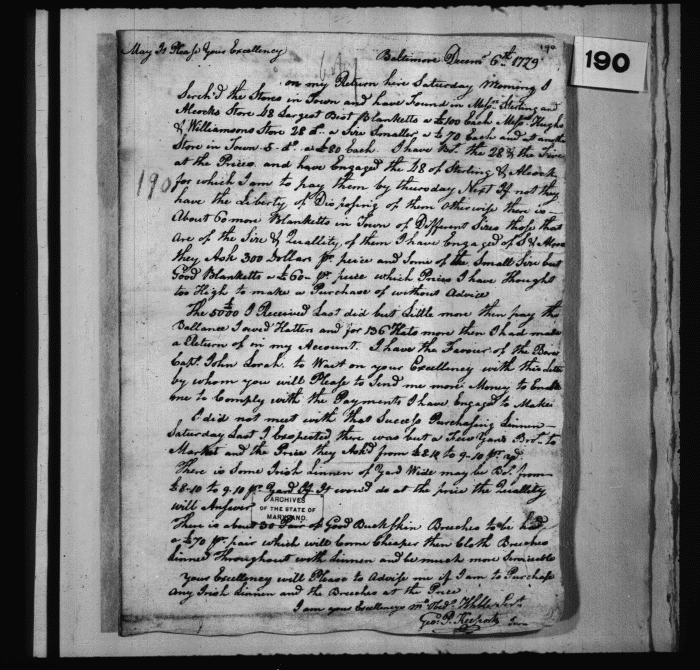 190
190
May It Please Your Excellency
Baltimore Decemr 6th 1779
on my Return heir Saturday Morning I
Serch'd the Stores in Town and have Found in Messrs Sterling and
Alcocks Store 48 Largest Best Blanketts a £100 Each Messrs Hughes
& Williamsons Store 28 do a Size Smaller a £70 Each and at another
Store in Town 5 do a £80 Each I have Bot the 28 & the Five
at the Prices and have Engaged the 48 of Sterling & Alcock
190
for which I am to pay them by thursday Next If not they
have the Liberty of Disposing of them otherwise there is
About 60 more Blanketts in Town of Different Sizes those that
Are of the Size & Quallity of them I have Engaged of S &
they Ask 300 Dollars pr peice and Some of the Small Size but
Good Blanketts a £60 pr peice which Prices I have thought
too High to make a Purchase of without Advice
The £5000 I Received Last did but Little more then pay the
Ballance I owed Hatters and for 136 Hats more then I had made
a Return of in my Account. I have the Favour of the Bearer
Capt. John Lorah to Wait on your Excellency with this
by whom you will Please to Send me more Money to Enable
me to Comply with the Payments I have Engaged to Make
I did not meet with that Success Purchasing Linnen
Saturday Last I Expected there was but a Few Yards Bro. to
Market and the Price they Ask'd from to 9-10 pr yd
There is Some Irish Linnen of Yard Wide may be Bot from
£8-10 to 9-10 pr Yard If It woud do at the price the Quallity
will Answer
ARCHIVES
OF THE STATE OF
MARYLAND.
There is about 30 Pair of Good Buckskin Breeches to be had
a £70 pr pair which will Come Cheaper then Cloth Breeches
Linned throughout with Linnen and be much more Serviceable
Your Excellency will Please to Advise me if I am to Purchase
any Irish Linnen and the Breeches at the Price
I am your Excellencys Hble Servt
Geo. P. Keeports